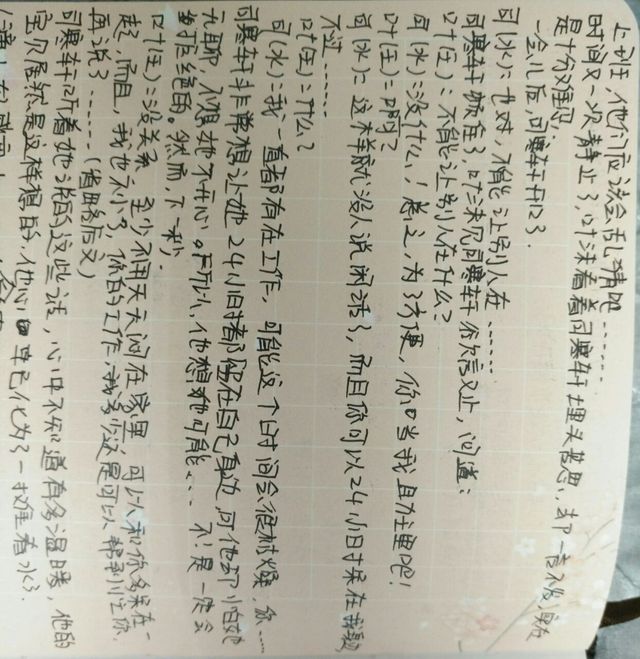 上班，他们应该会乱猜吧……
时间又一次静止了，叶沫看着司寒轩埋头苦思，却一言不发，实在
是十分难忍，
一会儿后，司寒轩开口了。
司(水)：也对，不能让别人在……
司寒轩顿住了，叶沫见司寒轩欲言又止，问道：
叶(王)：不能让别人在什么？
司(水)：没什么！总之，为了方便，你当我助理吧！
叶(王)：啊？
司(水)：这样就没人说闲话了，而且你可以24小时呆在我身边
不过……
叶(王)：什么？
司(水)：我一直都有在工作，可能这个时间会很枯燥，你……
司寒轩非常想让她24小时都陪在自己身边，可他却怕她
无聊，不想她不开心。所以，他想她可能…… 不！是一定会
拒绝的。然而，下一秒，
叶(王)：没关系，至少不用天天闷在家里，可以和你多呆在一
起，而且，我也不小了，你的工作，我多少还是可以帮到你，
再说了……(省略后文)
司寒轩听着她说的这些话，心中不知道有多温暖，他的
宝贝居然是这样想的，他心中早已化为了一摊春水了。